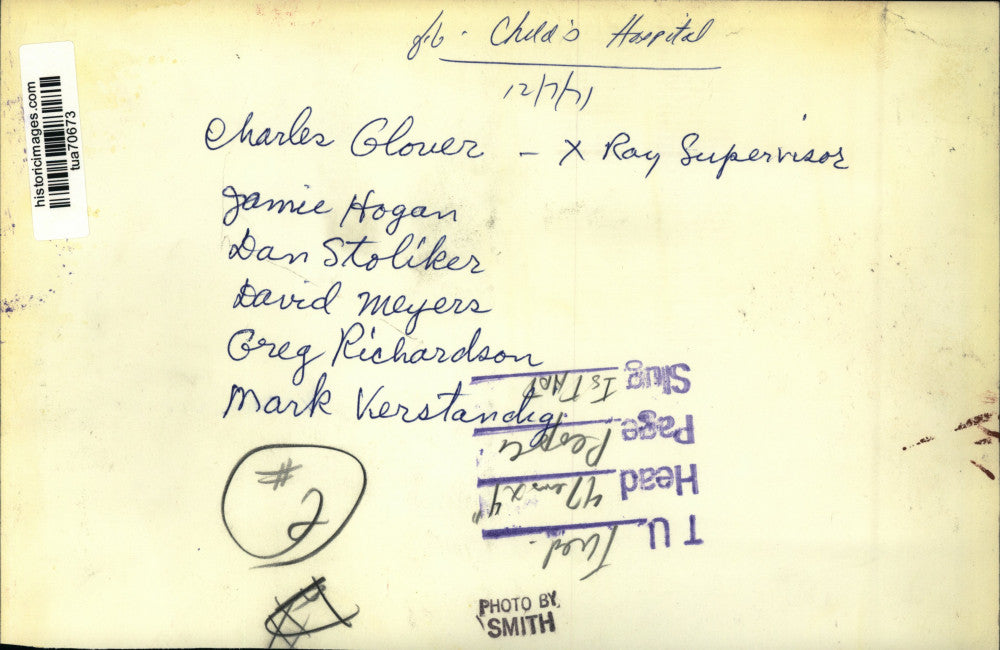 Child's Hospital
12/7/71
Charles Glover - X Ray Supervisor
Jamie Hogan
Dan Stoliker
David Meyers
Greg Richardson
Mark Verstandig
historicimages.com
tua70673
T U. Wed.
Head 47 ems x 4"
Page People
Slug 1ST ADD
#
PHOTO BY
SMITH